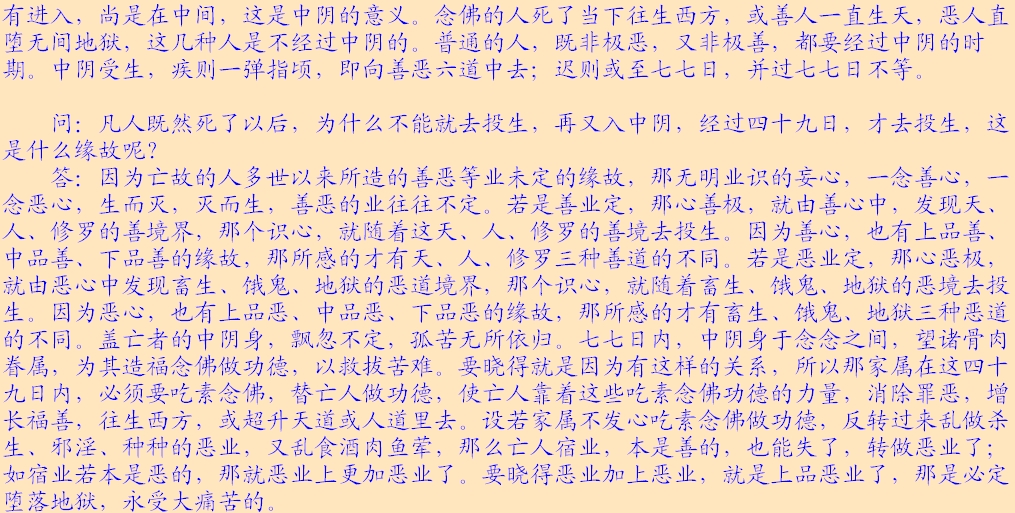 有进入，尚是在中间，这是中阴的意义。念佛的人死了当下往生西方，或善人一直生天，恶人直
堕无间地狱，这几种人是不经过中阴的。普通的人，既非极恶，又非极善，都要经过中阴的时
期。中阴受生，疾则一弹指顷，即向善恶六道中去；迟则或至七七日，并过七七日不等。
问：凡人既然死了以后，为什么不能就去投生，再又入中阴，经过四十九日，才去投生，这
是什么缘故呢？
答：因为亡故的人多世以来所造的善恶等业未定的缘故，那无明业识的妄心，一念善心，一
念恶心，生而灭，灭而生，善恶的业往往不定。若是善业定，那心善极，就由善心中，发现天、
人、修罗的善境界，那个识心，就随着这天、人、修罗的善境去投生。因为善心，也有上品善、
中品善、下品善的缘故，那所感的才有天、人、修罗三种善道的不同。若是恶业定，那心恶极，
就由恶心中发现畜生、饿鬼、地狱的恶道境界，那个识心，就随着畜生、饿鬼、地狱的恶境去投
生。因为恶心，也有上品恶、中品恶、下品恶的缘故，那所感的才有畜生、饿鬼、地狱三种恶道
的不同。盖亡者的中阴身，飘忽不定，孤苦无所依归。七七日内，中阴身于念念之间，望诸骨肉
眷属，为其造福念佛做功德，以救拔苦难。要晓得就是因为有这样的关系，所以那家属在这四十
九日内，必须要吃素念佛，替亡人做功德，使亡人靠着这些吃素念佛功德的力量，消除罪恶，增
长福善，往生西方，或超升天道或人道里去。设若家属不发心吃素念佛做功德，反转过来乱做杀
生、邪淫、种种的恶业，又乱食酒肉鱼荤，那么亡人宿业，本是善的，也能失了，转做恶业了；
如宿业若本是恶的，那就恶业上更加恶业了。要晓得恶业加上恶业，就是上品恶业了，那是必定
堕落地狱，永受大痛苦的。